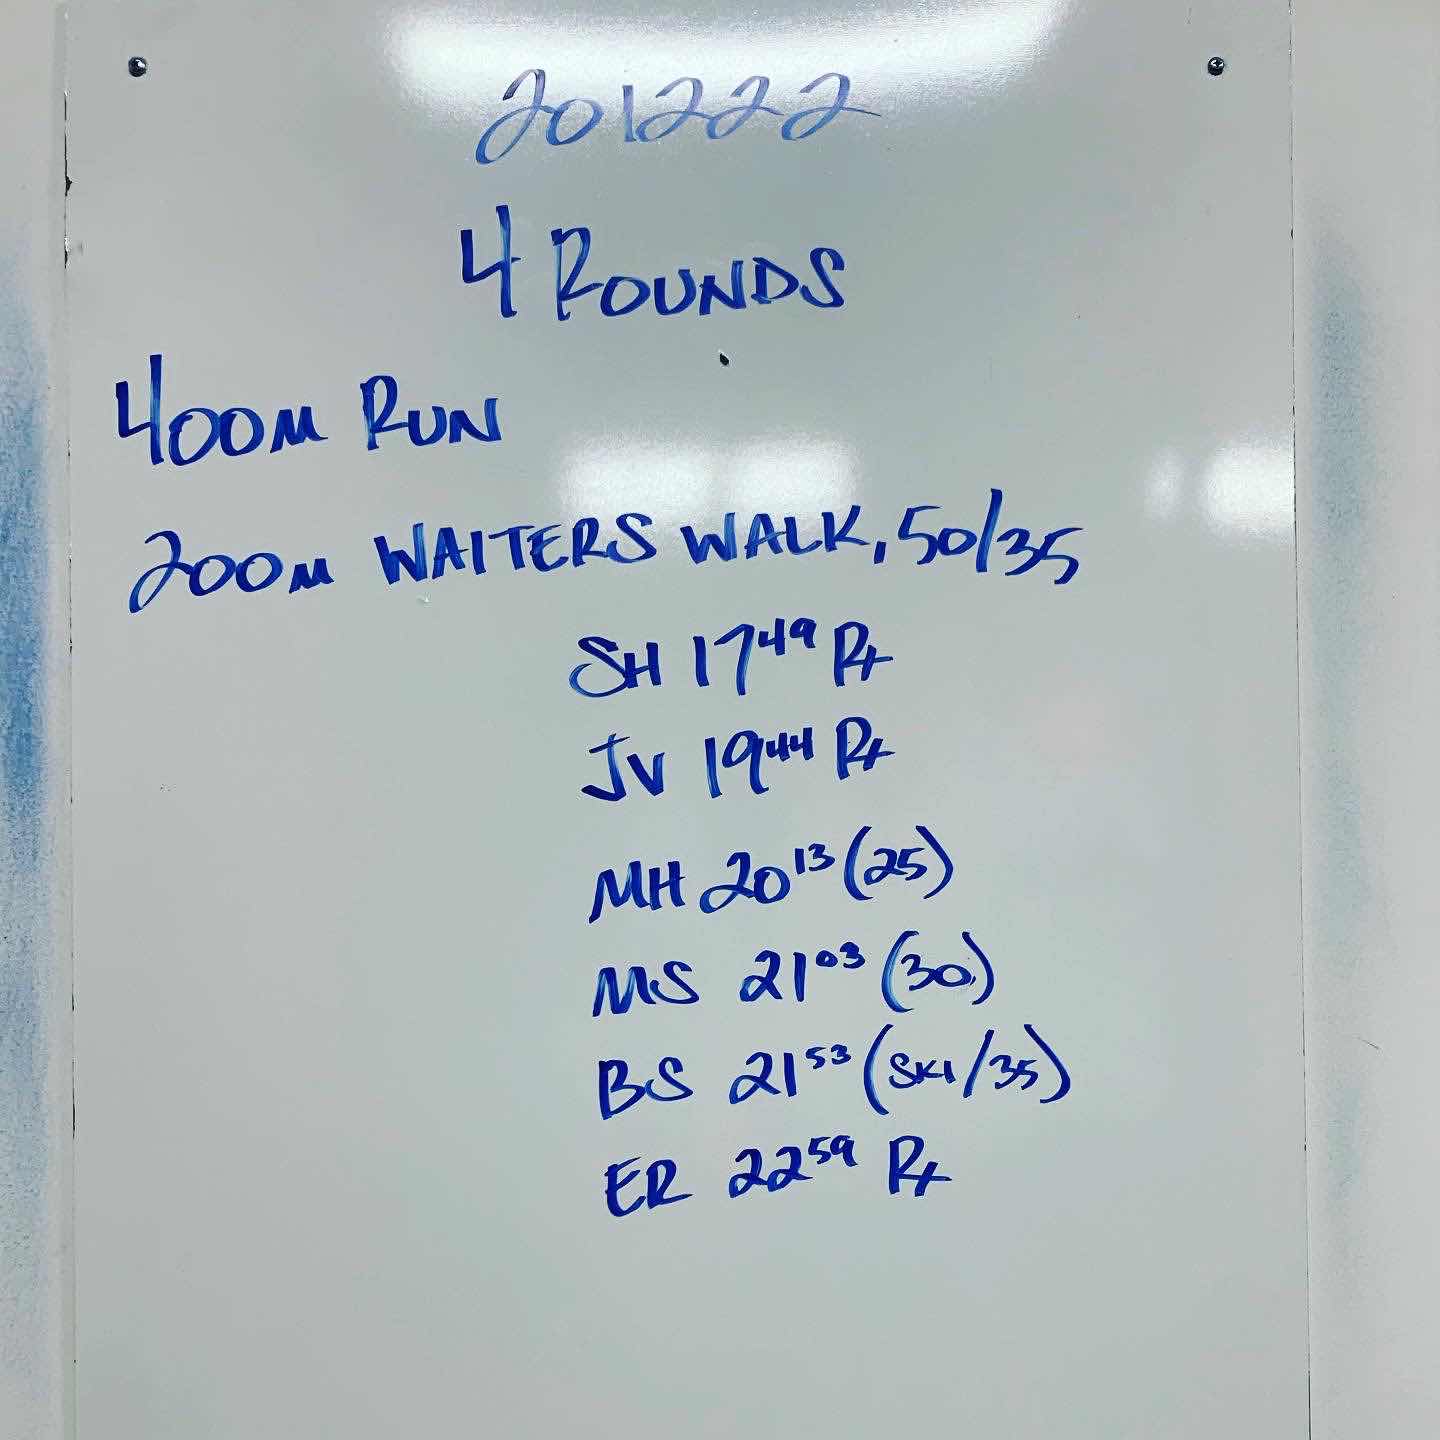 201222
4 ROUNDS
400M RUN
200M WAITERS WALK, 50/35
SH 17 49 Rx
JV 19 44 Rx
MH 20 13 (25)
MS 21 03 (30)
BS 21 53 (SKI/35)
ER 22 59 Rx